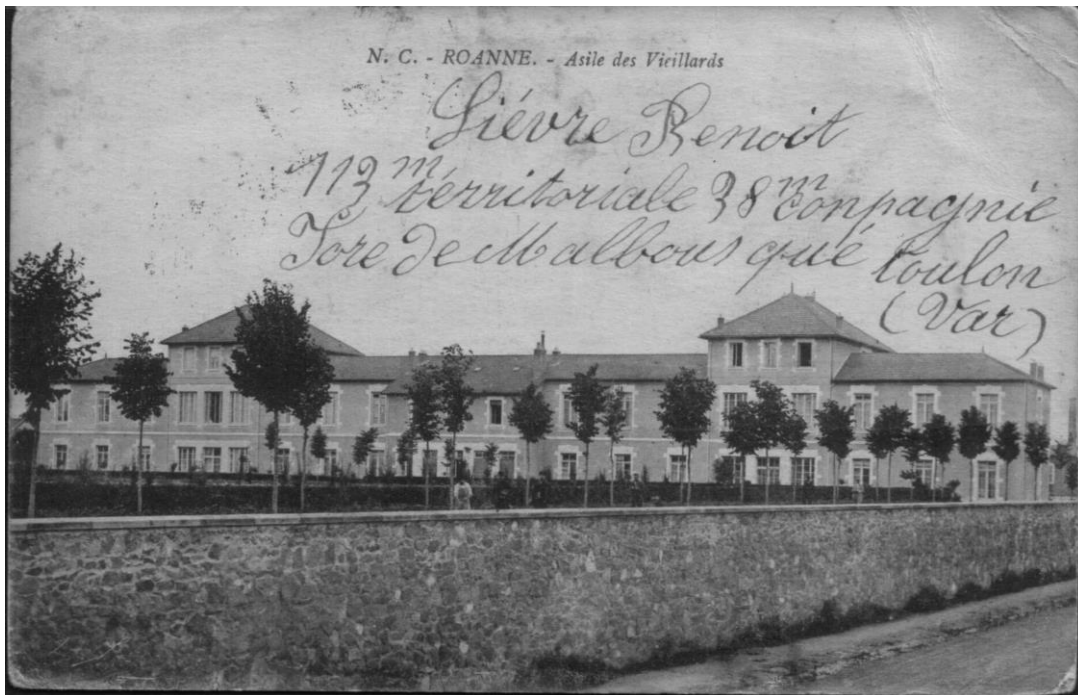 N. C. - ROANNE. - Asile des Vieillards
Liévre Benoit
113m térritoriale 38m conpagnie
Fore de Malbousqué toulon
(Var)